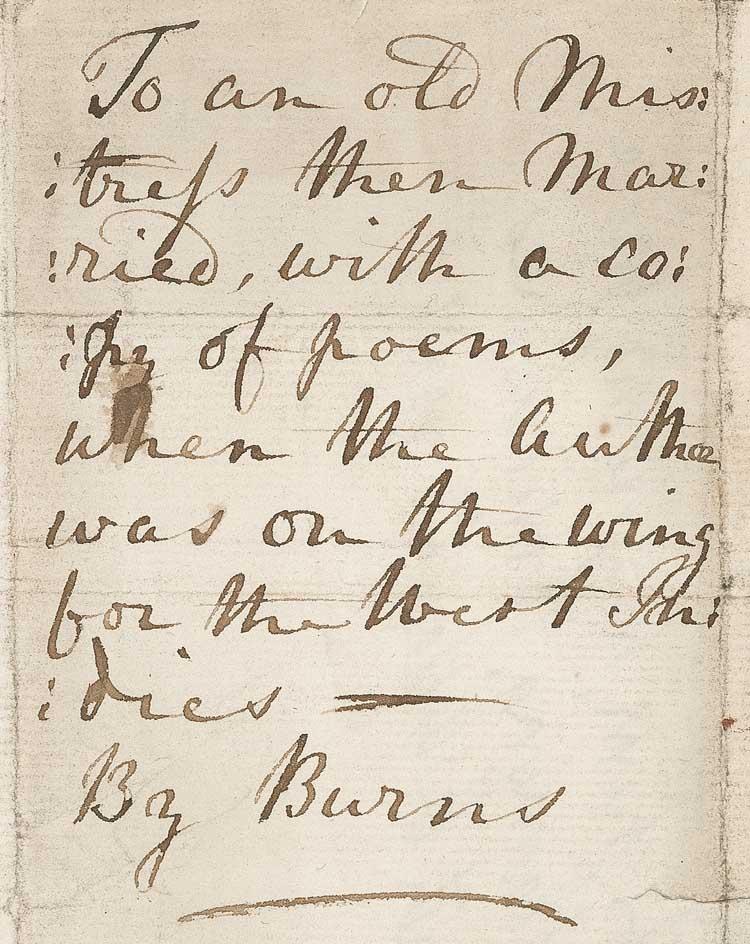 To an old Mis:
:treſs then Mar:
:ried, with a co:
:py of poems,
when the Author
was on the wing
for the West In:
:dies —
By Burns